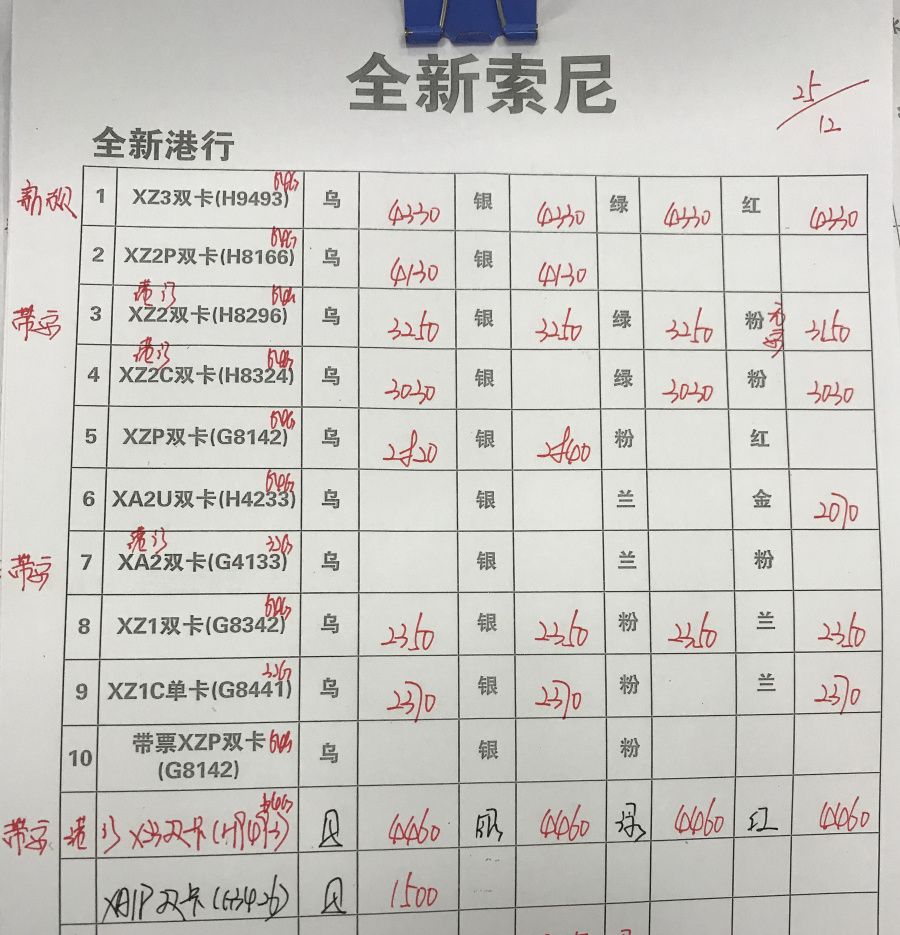 全新索尼
25/12
全新港行
1 XZ3双卡(H9493) 64G 乌 4330 银 4330 绿 4330 红 4330
2 XZ2P双卡(H8166) 64G 乌 4130 银 4130
带票 3 港行 XZ2双卡(H8296) 64G 乌 3250 银 3250 绿 3250 粉 3150
4 港行 XZ2C双卡(H8324) 64G 乌 3030 银 绿 3030 粉 3030
5 XZP双卡(G8142) 64G 乌 银 粉 红
6 XA2U双卡(H4233) 64G 乌 银 兰 金 2070
带票 7 港行 XA2双卡(G4133) 32G 乌 银 兰 粉
8 XZ1双卡(G8342) 64G 乌 2350 银 2350 粉 2350 兰 2350
9 XZ1C单卡(G8441) 32G 乌 2370 银 2370 粉 兰 2370
10 带票XZP双卡 64G 乌 银 粉
(G8142)
带票 港行 XZ3双卡(H9493) 64G 4460 银 4460 绿 4460 红 4460
XA1P双卡(G3426) 1500